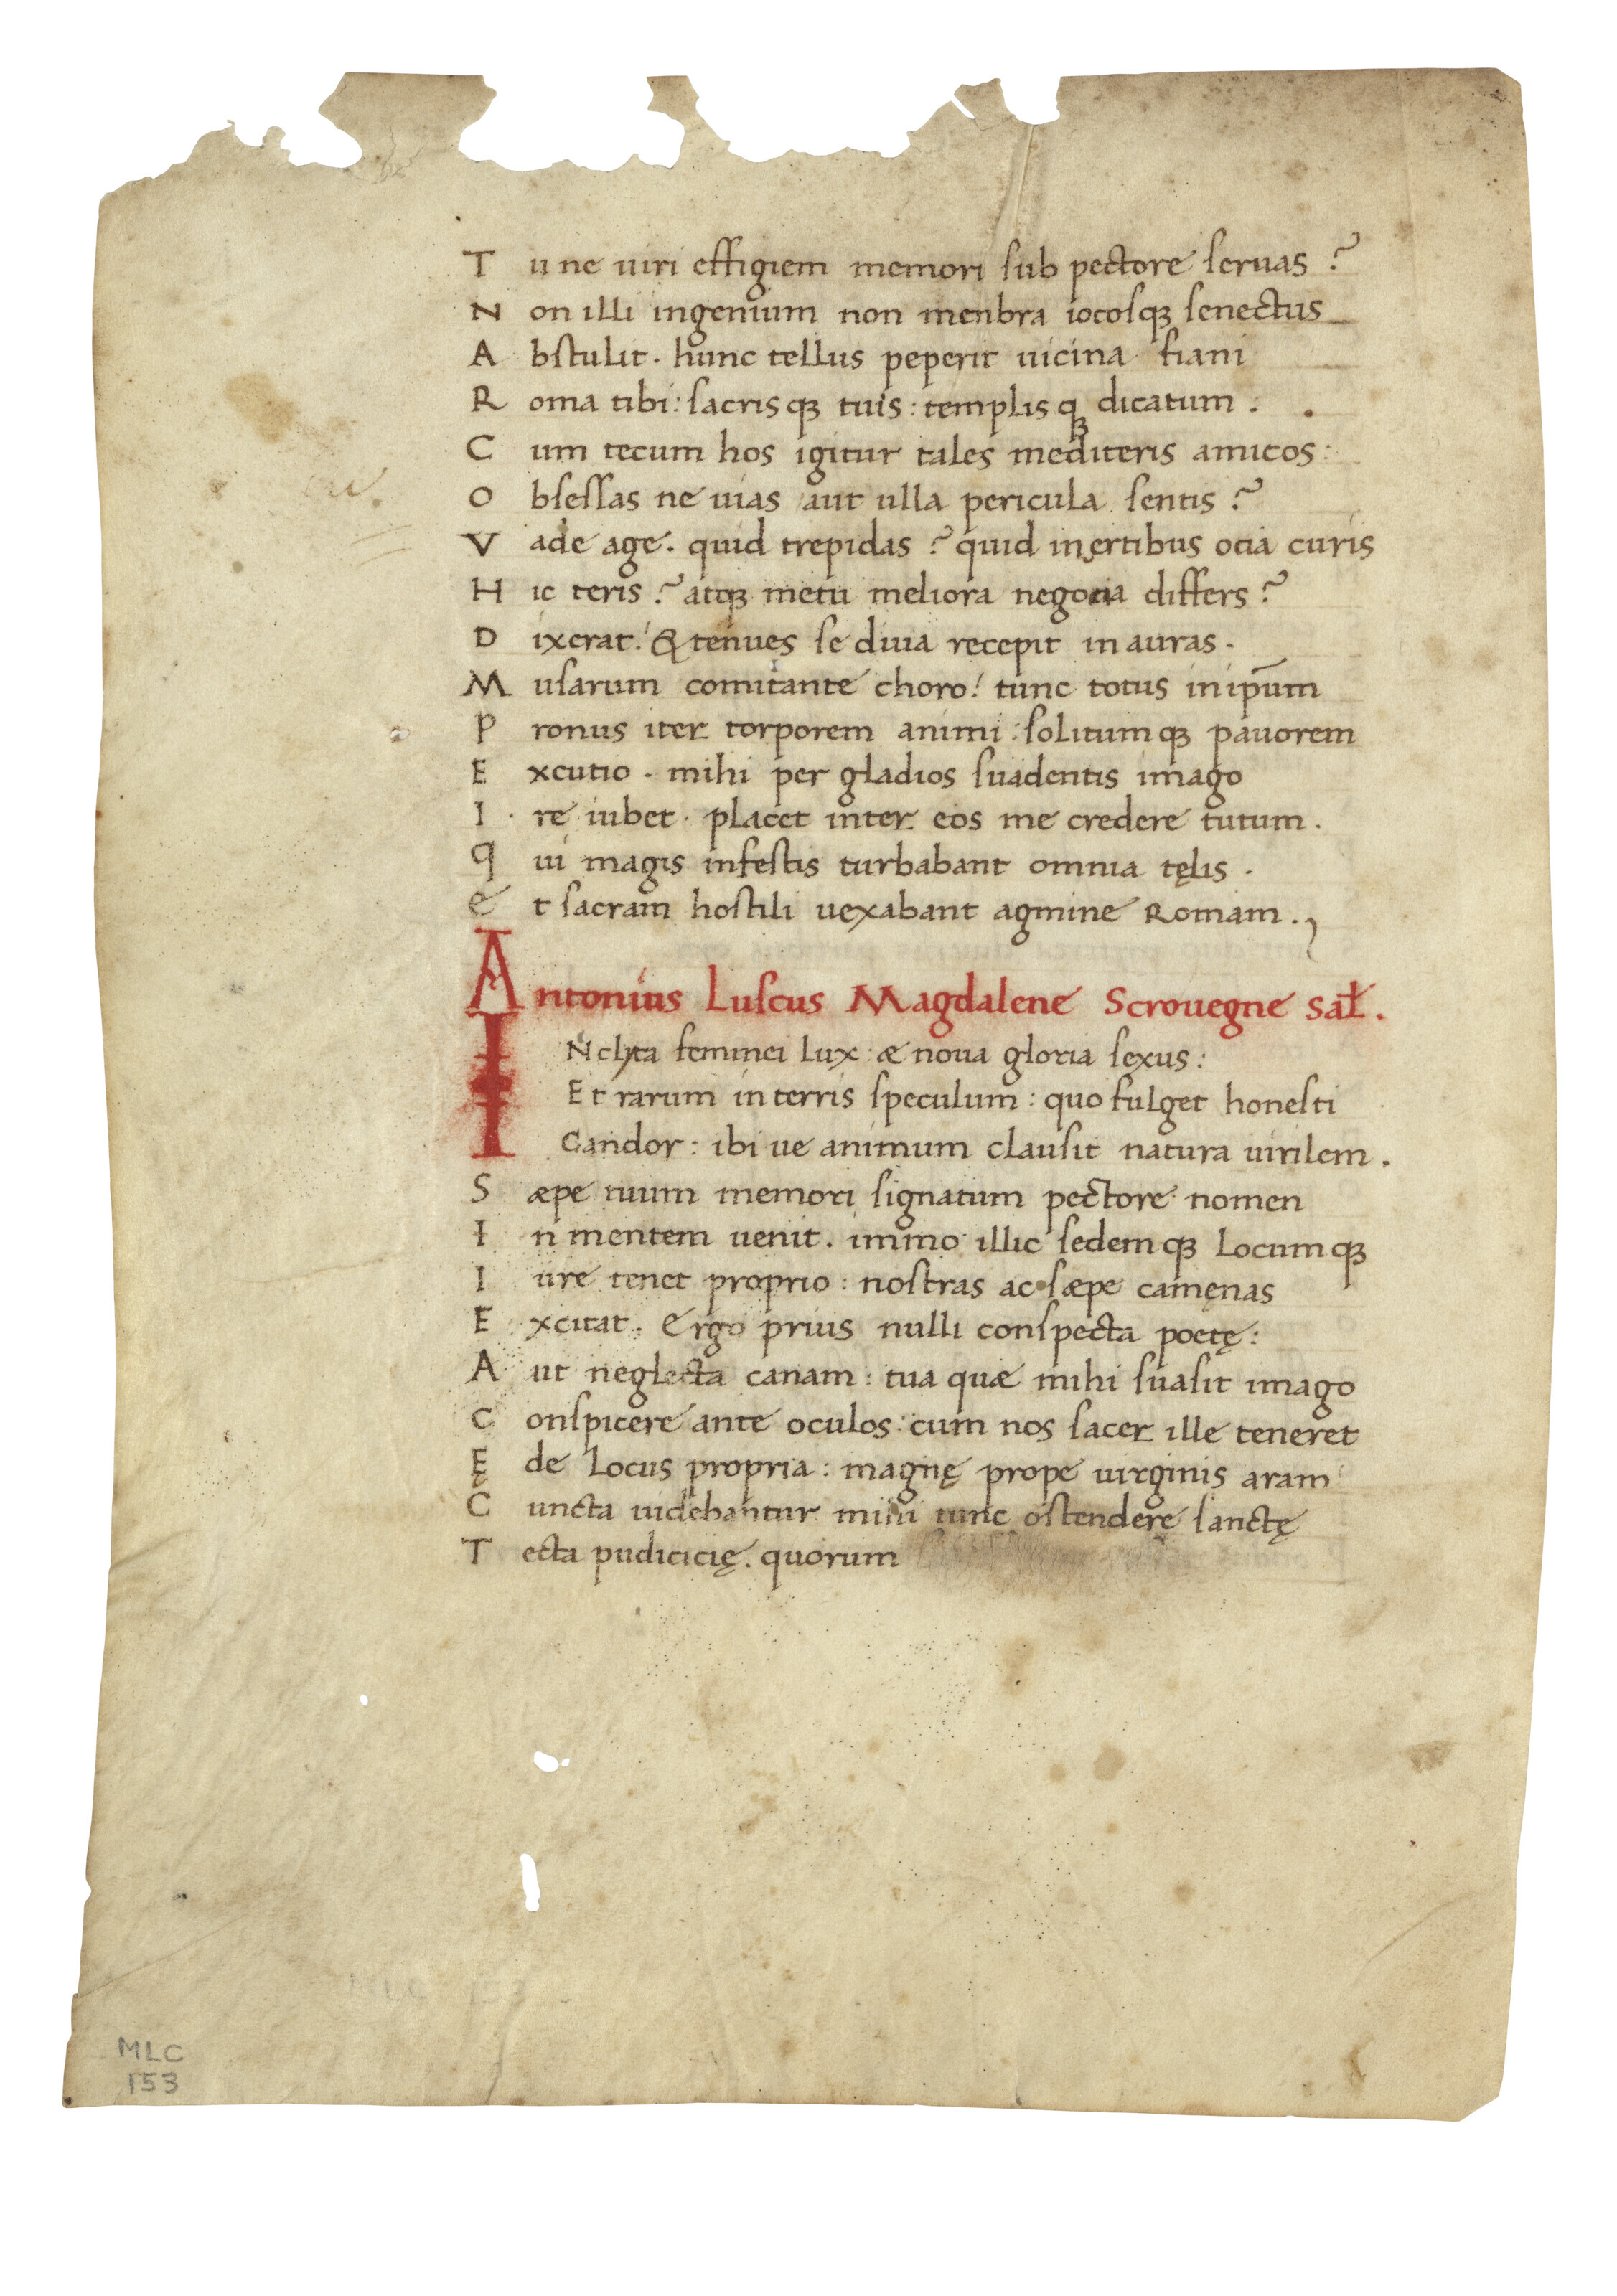 Tu ne uiri effigiem memori sub pectore seruas ?
Non illi ingenium non menbra iocosq; senectus
Abstulit . hunc tellus peperit uicina fiani
Roma tibi : sacrisq; tuis : templisq; dicatum .
Cum tecum hos igitur tales mediteris amicos :
Obsessas ne uias aut ulla pericula sentis ?
Vade age . quid trepidas ? quid inertibus ocia curis
Hic teris ? atq; metu meliora negocia differs ?
Dixerat ! & tenues se diua recepit in auras .
Musarum comitante choro ! tunc totus in ip̅um
Pronus iter torporem animi : solitumq; pauorem
Excutio . mihi per gladios suadentis imago
Ire iubet . placet inter eos me credere tutum .
Qui magis infestis turbabant omnia tęlis .
et sacram hostili uexabant agmine Romam .,
Antonius Luscus Magdalene Scrouegne Sał .
INclyta feminei lux : æ noua gloria sexus :
Et rarum in terris speculum : quo fulget honesti
Candor : ibi ue animum clausit natura uirilem .
Sæpe tuum memori signatum pectore nomen
In mentem uenit . immo illic sedemq; Locumq;
Iure tenet proprio : nostras ac sæpe camęnas
Excitat . Ergo prius nulli conspecta poetę :
Aut neglecta canam : tua quæ mihi suasit imago
Conspicere ante oculos : cum nos sacer ille teneret
Ęde Locus propria : magnę prope uirginis aram
Cuncta uidebantur mihi tunc ostendere sanctę
Tecta pudicicię . quorum
MLC
153